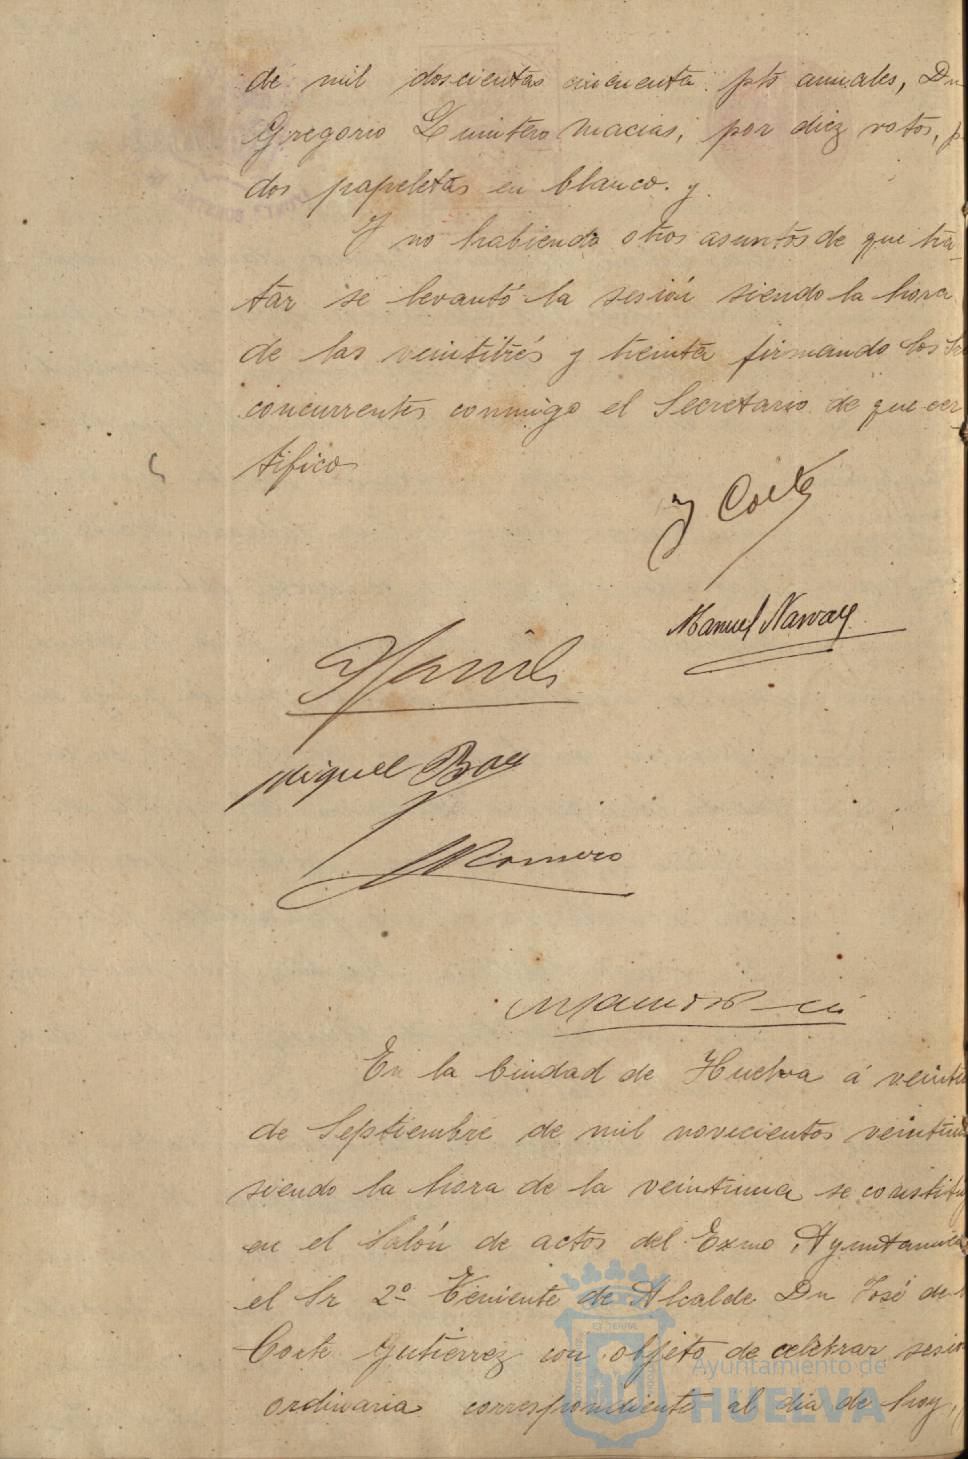 de mil doscientas cincuenta pts anuales, Dn
Gregorio Quintero Macias, por diez votos, y
dos papeletas en blanco. y
Y no habiendo otros asuntos de que tra-
tar se levantó la sesión siendo la hora
de las veintitrés y treinta firmando los Sres
concurrentes conmigo el Secretario de que cer-
tifico
J Corte
Manuel Navarro
Miguel Bao
J Romero
En la Ciudad de Huelva á
de Septiembre de mil novecientos
siendo la hora de la veintiuna se constituyó
en el Salón de actos del Exmo Ayuntamiento
el Sr 2º Teniente de Alcalde Dn José de la
Corte Gutierrez con objeto de celebrar sesión
ordinaria correspondiente al dia de hoy,
Ayuntamiento de
HUELVA